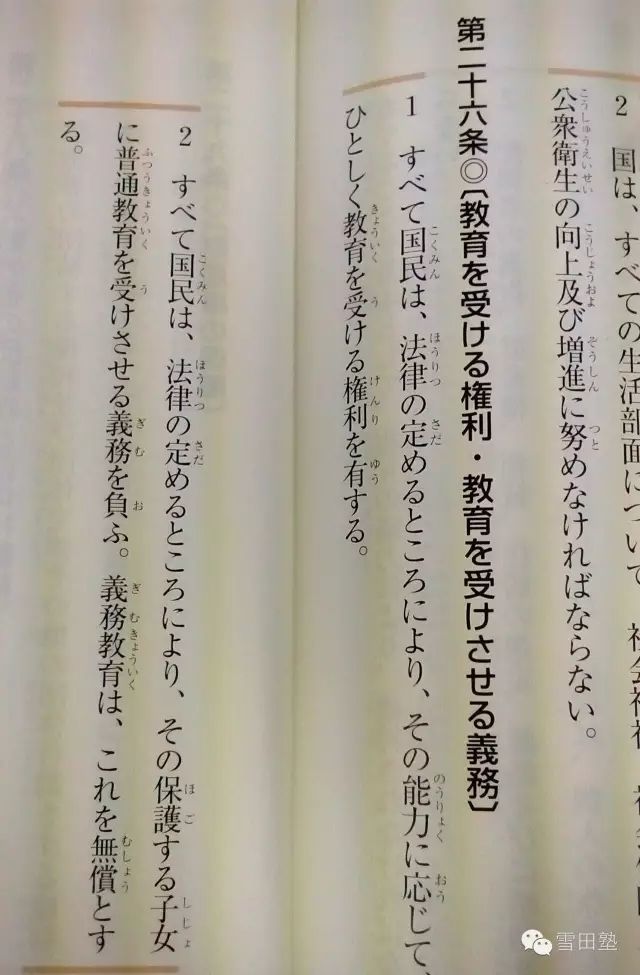 2　国は、すべての生活部面について、社会福祉、社会
公衆衛生の向上及び増進に努めなければならない。
第二十六条◎〔教育を受ける権利・教育を受けさせる義務〕
1　すべて国民は、法律の定めるところにより、その能力に応じて、
ひとしく教育を受ける権利を有する。
2　すべて国民は、法律の定めるところにより、その保護する子女
に普通教育を受けさせる義務を負ふ。義務教育は、これを無償とす
る。
雪田塾